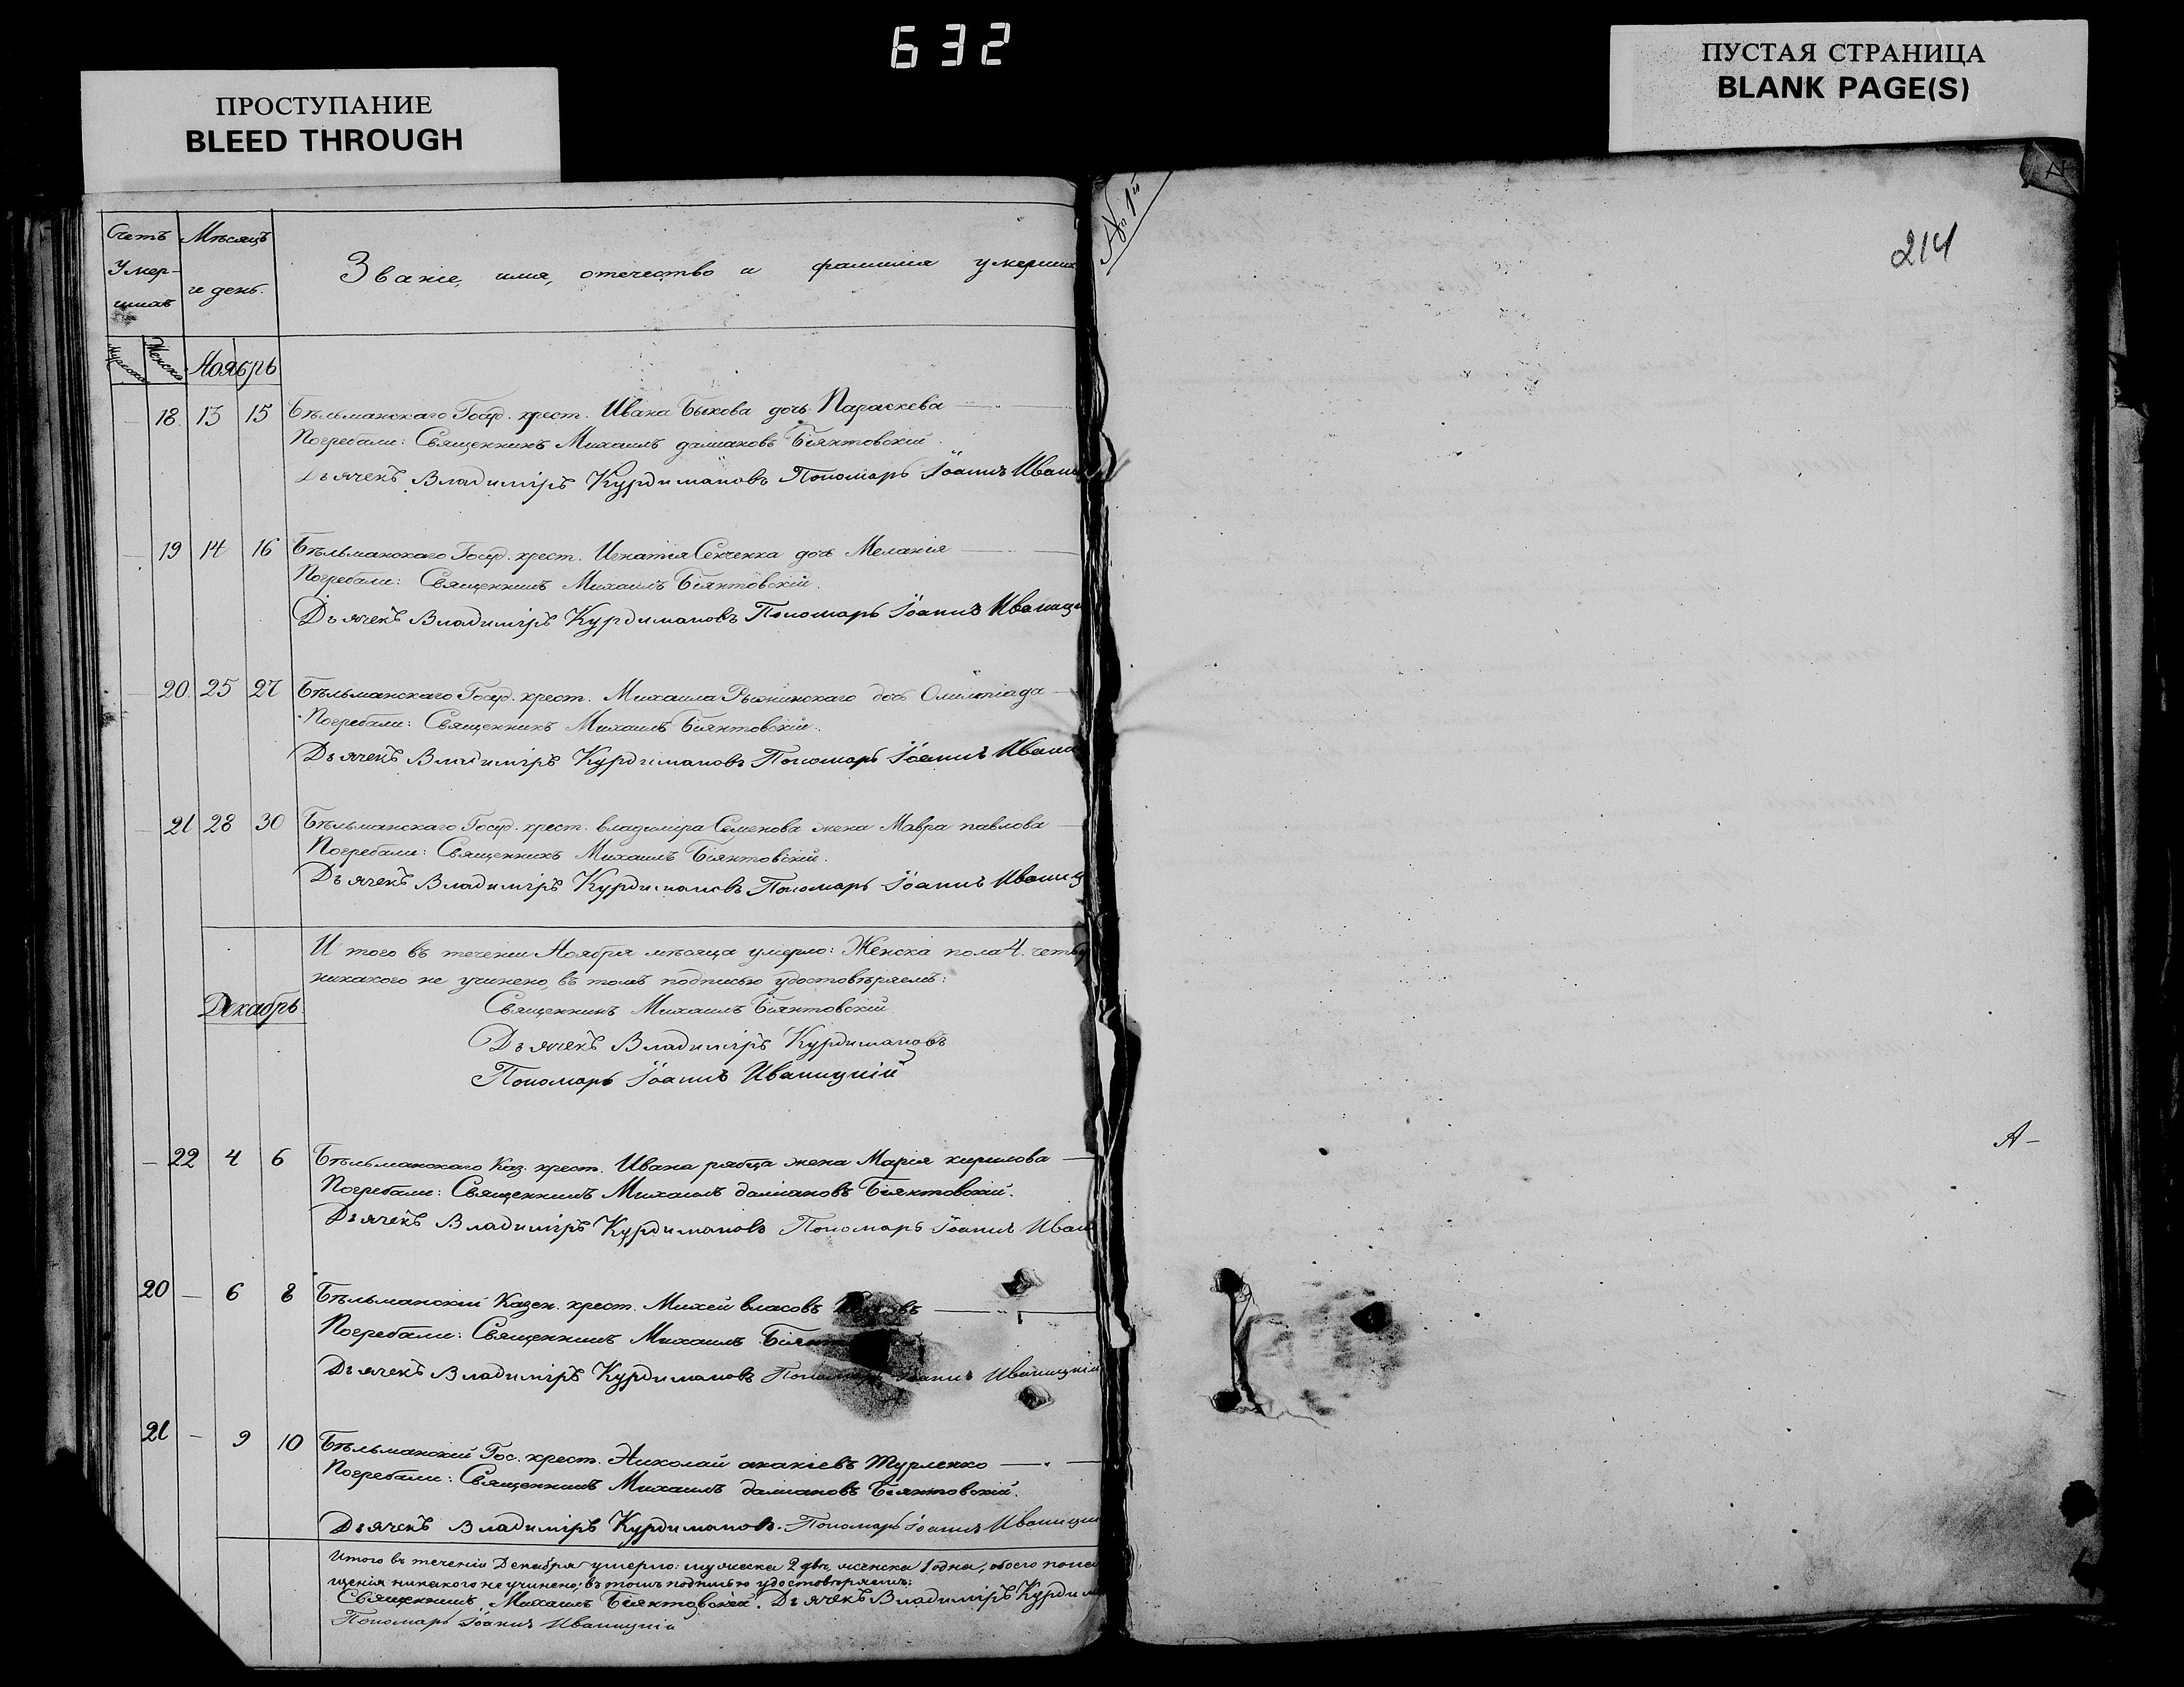 632
ПРОСТУПАНИЕ
BLEED THROUGH
ПУСТАЯ СТРАНИЦА
BLANK PAGE(S)
Счетъ Умер- шихъ
Мѣсяцъ и день.
Званіе, имя, отечество и фамилія умерших
Мужеска Женска Ноябрь
18 13 15 Бѣльманскаго Госуд. крест. Ивана Быкова дочь Параскева
Погребали: Священникъ Михаилъ даміановъ
Дьячекъ Владиміръ Курдимановъ Пономарь Іоаннъ Ивани
19 14 16 Бѣльманскаго Госуд. крест. Игнатія Сенченка дочь Меланія
Погребали: Священникъ Михаилъ
Дьячекъ Владиміръ Курдимановъ Пономарь Іоаннъ Иваниц
20 25 27 Бѣльманскаго Госуд. крест. Михаила дочь Олимпіада
Погребали: Священникъ Михаилъ
Дьячекъ Владиміръ Курдимановъ Пономарь Іоаннъ Ивани
21 28 30 Бѣльманскаго Госуд. крест. владиміра Семенова жена Мавра павлова
Погребали: Священникъ Михаилъ
Дьячекъ Владиміръ Курдимановъ Пономарь Іоаннъ Иваниц
И того въ теченіи Ноября мѣсяца умерло: Женска пола 4.
никакого не учинено, въ томъ подписью удостовѣряемъ:
Декабрь
Священникъ Михаилъ
Дьячекъ Владиміръ Курдимановъ
Пономарь Іоаннъ Иваницкій
22 4 6 Бѣльманскаго Каз. крест. Ивана рябца жена Марія кирилова
Погребали: Священникъ Михаилъ даміановъ
Дьячекъ Владиміръ Курдимановъ Пономарь Іоаннъ Иван
20 6 8 Бѣльманскій Казен. крест. Михей власовъ
Погребали: Священникъ Михаилъ
Дьячекъ Владиміръ Курдимановъ Пономарь Іоаннъ Иваницкій
21 9 10 Бѣльманскій Гос. крест. Николай ананіевъ Турленко
Погребали: Священникъ Михаилъ даміановъ
Дьячекъ Владиміръ Курдимановъ. Пономарь Іоаннъ Иваницк
Итого въ теченіи Декабря умерло: мужеска 2 два, женска 1 одна, обоего пола
щенія никакого не учинено; въ томъ подписью удостовѣряемъ:
Священникъ Михаилъ Дьячекъ Владиміръ Курдим
Пономарь Іоаннъ Иваницкій
214